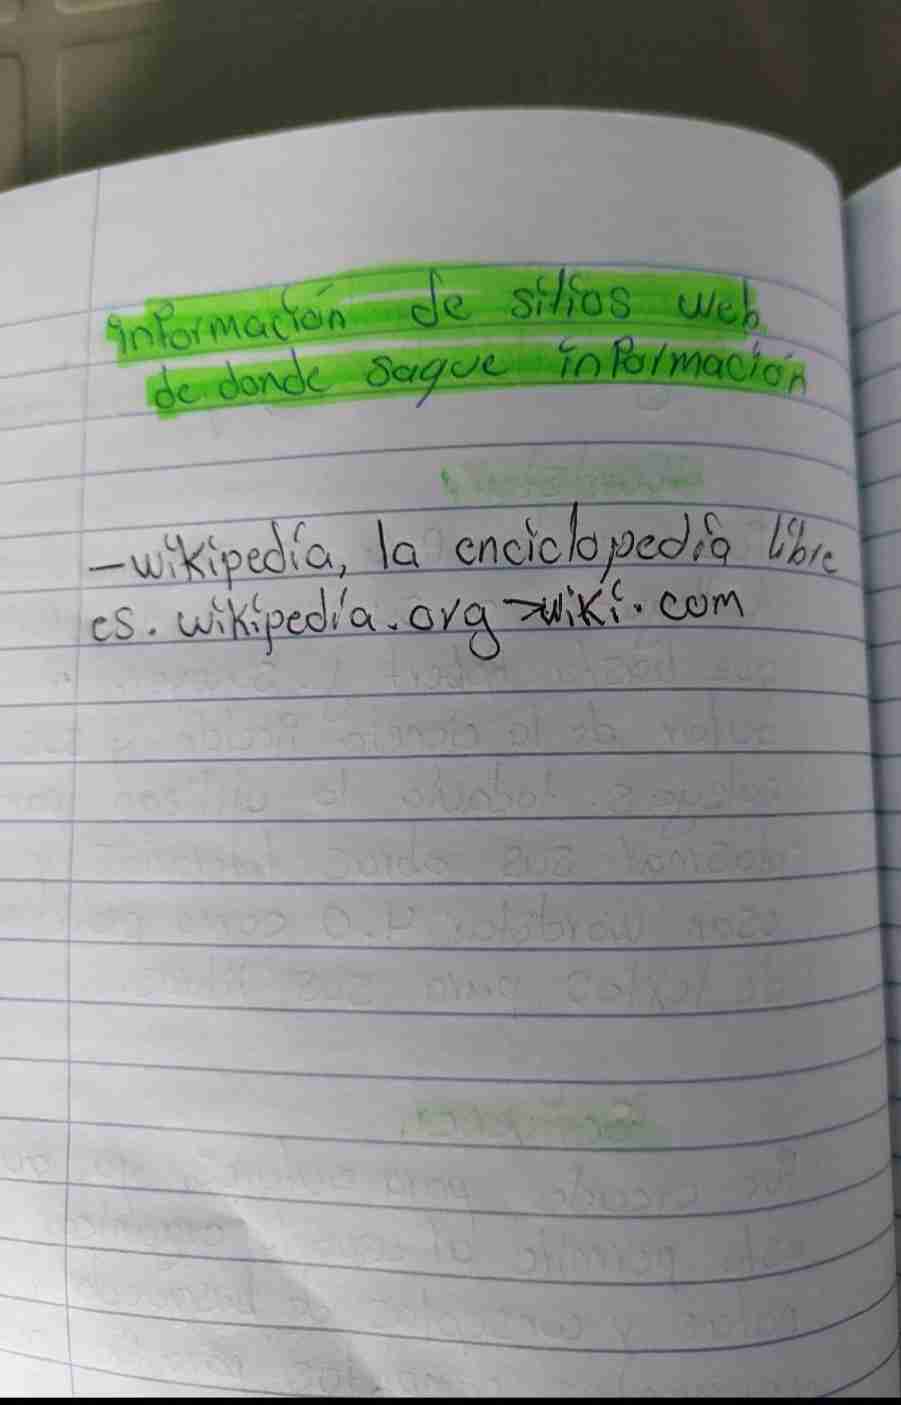 información de sitios web
de donde saque información
-wikipedía, la enciclopedia libre
es.wikipedía.org>wiki.com